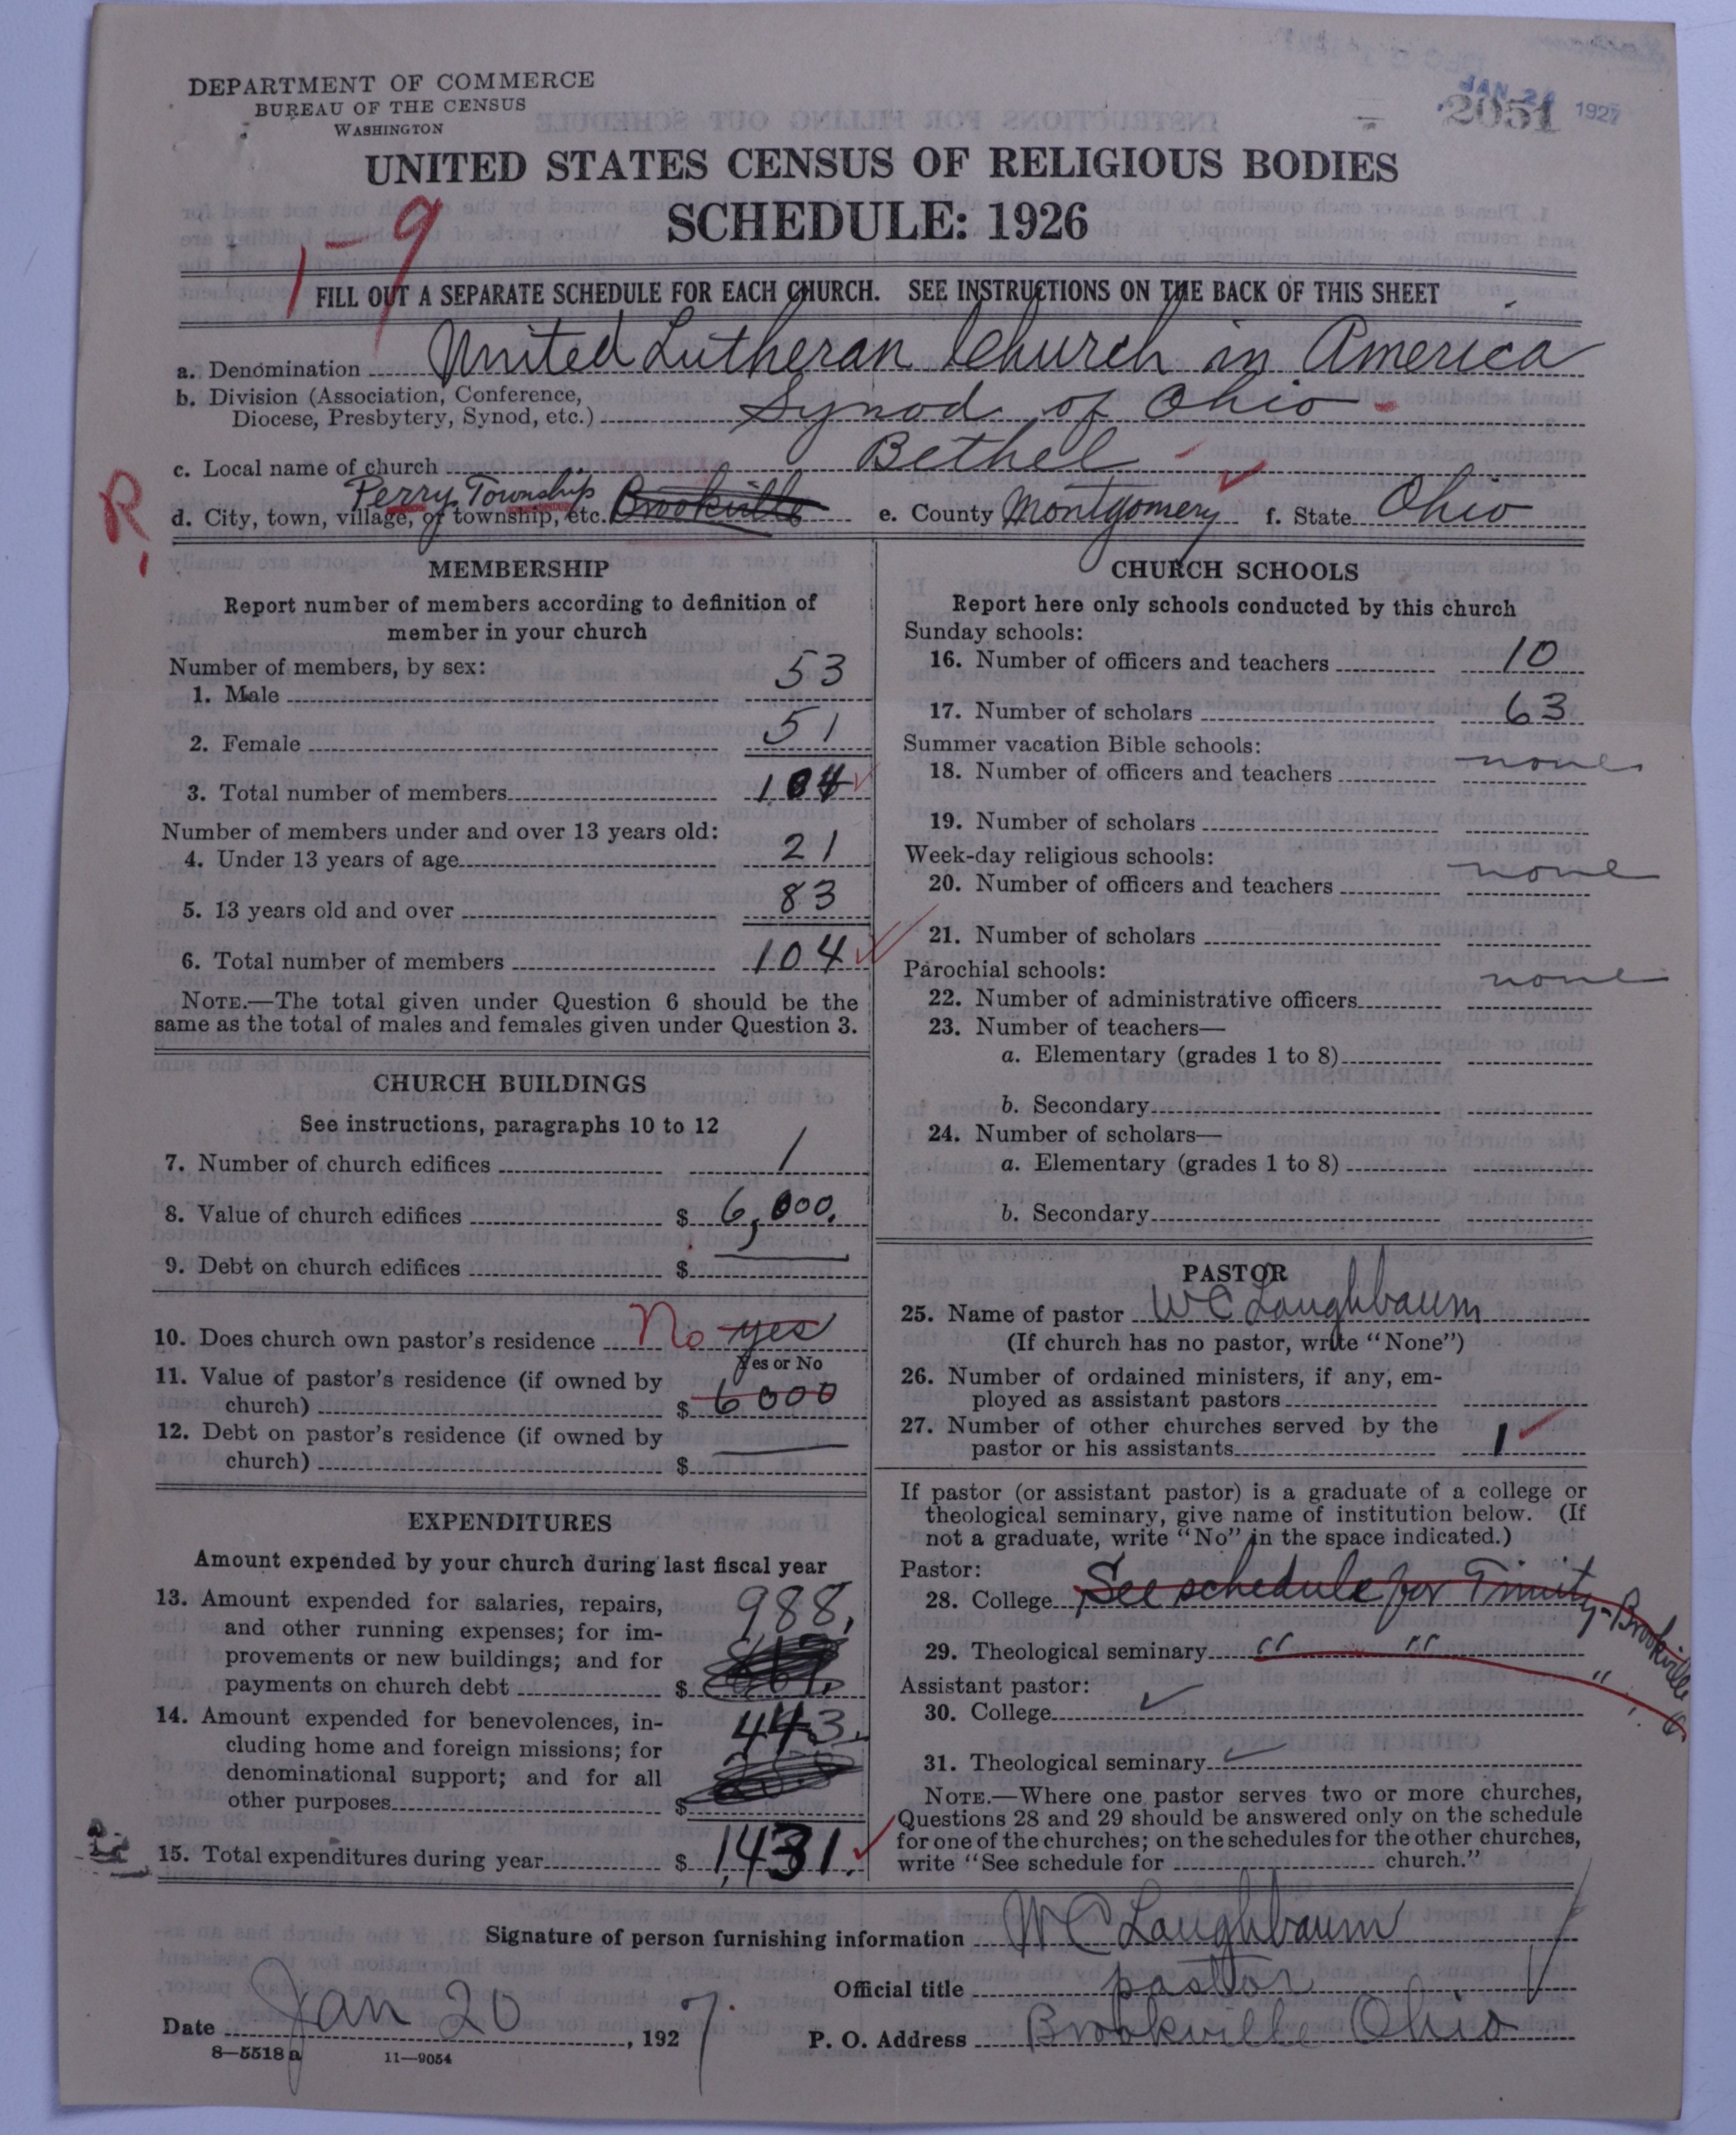 DEPARTMENT OF COMMERCE
BUREAU OF THE CENSUS
WASHINGTON
JAN 24 1927
2051
UNITED STATES CENSUS OF RELIGIOUS BODIES
SCHEDULE: 1926
1-9
FILL OUT A SEPARATE SCHEDULE FOR EACH CHURCH. SEE INSTRUCTIONS ON THE BACK OF THIS SHEET
a. Denomination United Lutheran Church in America
b. Division (Association, Conference,
Diocese, Presbytery, Synod, etc.) Synod of Ohio
c. Local name of church Bethel
R
Perry Township
d. City, town, village, or township, etc. Brookville e. County Montgomery f. State Ohio
MEMBERSHIP
Report number of members according to definition of
member in your church
Number of members, by sex:
1. Male 53
2. Female 51
3. Total number of members 104
Number of members under and over 13 years old:
4. Under 13 years of age 21
5. 13 years old and over 83
6. Total number of members 104
NOTE.—The total given under Question 6 should be the
same as the total of males and females given under Question 3.
CHURCH BUILDINGS
See instructions, paragraphs 10 to 12
7. Number of church edifices 1
8. Value of church edifices $ 6,000.
9. Debt on church edifices $
10. Does church own pastor's residence No yes
Yes or No
11. Value of pastor's residence (if owned by
church) $ 6000
12. Debt on pastor's residence (if owned by
church) $
EXPENDITURES
Amount expended by your church during last fiscal year
13. Amount expended for salaries, repairs,
and other running expenses; for im-
provements or new buildings; and for
payments on church debt $ 988.
14. Amount expended for benevolences, in-
cluding home and foreign missions; for
denominational support; and for all
other purposes $ 443.
15. Total expenditures during year $ 1,431.
CHURCH SCHOOLS
Report here only schools conducted by this church
Sunday schools:
16. Number of officers and teachers 10
17. Number of scholars 63
Summer vacation Bible schools:
18. Number of officers and teachers none
19. Number of scholars
Week-day religious schools:
20. Number of officers and teachers none
21. Number of scholars
Parochial schools:
22. Number of administrative officers none
23. Number of teachers—
a. Elementary (grades 1 to 8)
b. Secondary
24. Number of scholars—
a. Elementary (grades 1 to 8)
b. Secondary
PASTOR
25. Name of pastor W C Laughbaum
(If church has no pastor, write "None")
26. Number of ordained ministers, if any, em-
ployed as assistant pastors
27. Number of other churches served by the
pastor or his assistants 1
If pastor (or assistant pastor) is a graduate of a college or
theological seminary, give name of institution below. (If
not a graduate, write "No" in the space indicated.)
Pastor:
28. College See schedule for Trinity-Brookville O
29. Theological seminary " " "
Assistant pastor:
30. College ✓
31. Theological seminary ✓
NOTE.—Where one pastor serves two or more churches,
Questions 28 and 29 should be answered only on the schedule
for one of the churches; on the schedules for the other churches,
write "See schedule for church."
Signature of person furnishing information W C Laughbaum
Official title pastor
Date Jan 20, 1927. P. O. Address Brookville Ohio
8—5518 a 11—9054